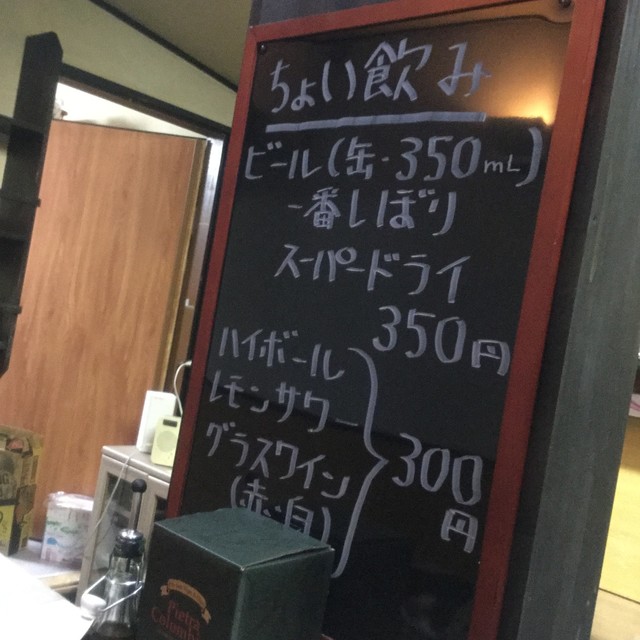 ちょい飲み
ビール(缶・350mL)
一番しぼり
スーパードライ
350円
ハイボール
レモンサワー
グラスワイン
(赤・白)
300
円
Pietro